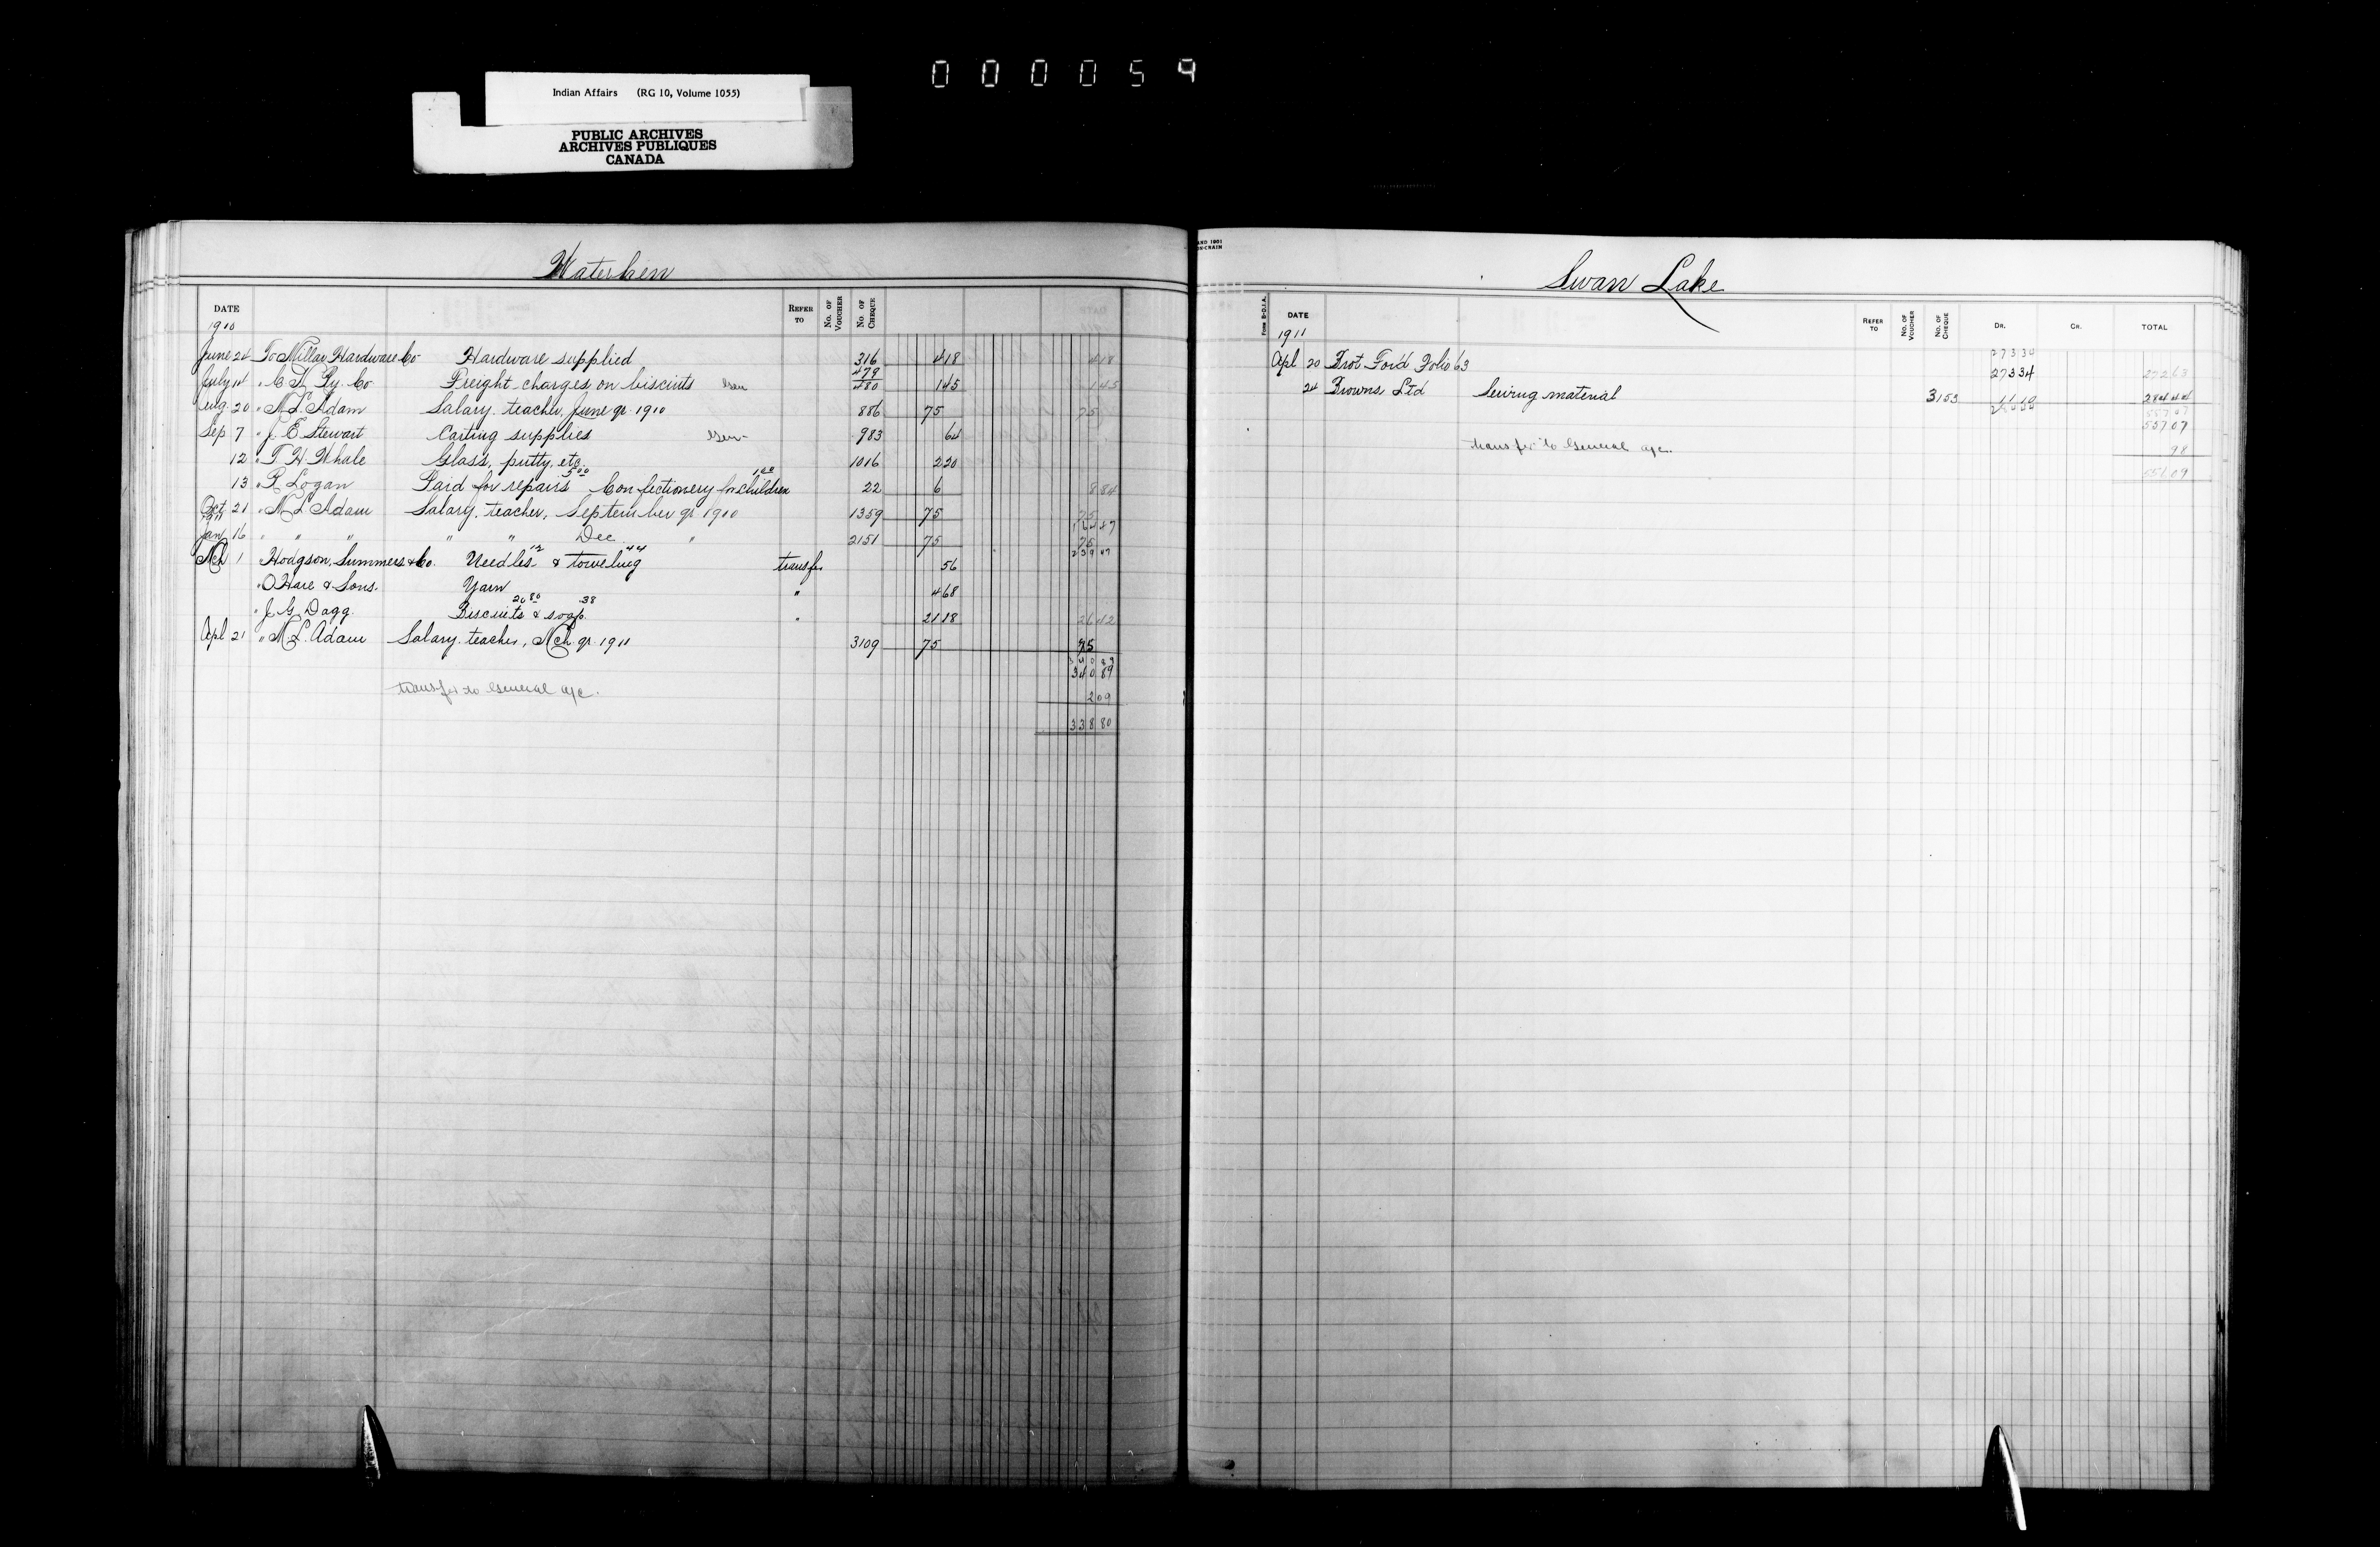 000059
Indian Affairs (RG 10, Volume 1055)
PUBLIC ARCHIVES
ARCHIVES PUBLIQUES
CANADA
Waterhen
DATE REFER TO No. OF VOUCHER No. OF CHEQUE
1910
June 24 To Millar Hardware Co Hardware supplied 316 4 18 4 18
479
July 14 " C N Ry. Co Freight charges on biscuits Gen 480 1 45 1 45
Aug. 20 " M L Adam Salary. teacher, June qr. 1910 886 75 75
Sep 7 " J. E Stewart Carting supplies Gen 983 64
12 " T H. Whale Glass, putty, etc. 1016 2 20
5 00 1 00
13 " R Logan Paid for repairs Confectionery for children 22 6 8 84
Oct 21 " M L Adam Salary. teacher, September qr 1910 1359 75 75
1911 164 47
Jan 16 " " " " " Dec " 2151 75 75
12 44 239 47
Mch 1 Hodgson, Summers & Co. Needles & toweling transfer 56
" O'Hare & Sons. Yarn " 4 68
20 80 38
" J. G. Dagg. Biscuits & soap. " 21 18 26 42
Apl 21 " M L. Adam Salary. teacher, Mch qr. 1911 3109 75 75
340 89
340 89
transfer to General a/c. 2 09
338 80
AND 1901
Form B-D.I.A.
Swan Lake
DATE REFER TO No. OF VOUCHER No. OF CHEQUE DR. CR. TOTAL
1911
273 34
Apl 20 Brot Ford Folio 63 273 34 272 63
24 Browns Ltd Sewing material 3153 284 44
557 07
557 07
transfer to General a/c. 98
556 09